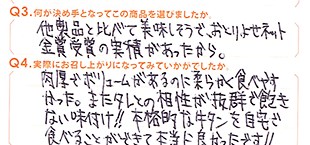 Q3.何が決め手となってこの商品を選びましたか。
他製品と比べて美味しそうで、おとりよせネット
金賞受賞の実積があったから。
Q4.実際にお召し上がりになってみていかがでしたか。
肉厚でボリュームがあるのに柔らかく食べやす
かった。またタレとの相性が抜群で飽き
ない味付け!! 本格的な牛タンを自宅で
食べることができて本当に良かったです!!